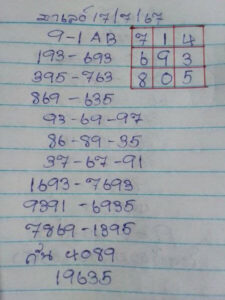 มาเลย์ 17/7/67
9-1 AB 7 1 4
193-693 6 9 3
395-763 8 0 5
869-635
93-69-97
86-89-35
37-67-91
1693-7693
9391-6935
7869-1395
4089
19635